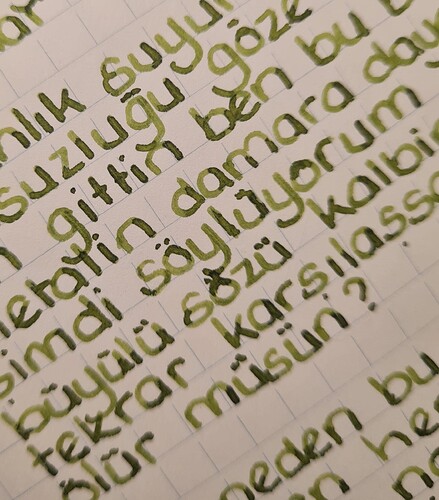 ar
nlık suyu
suzluğu göze
n gittin ben bu b
damara day
simdi söylüyorum
büyülü sözü kalbin
tekrar karsılassa
ölür müsün?
neden bu
n he